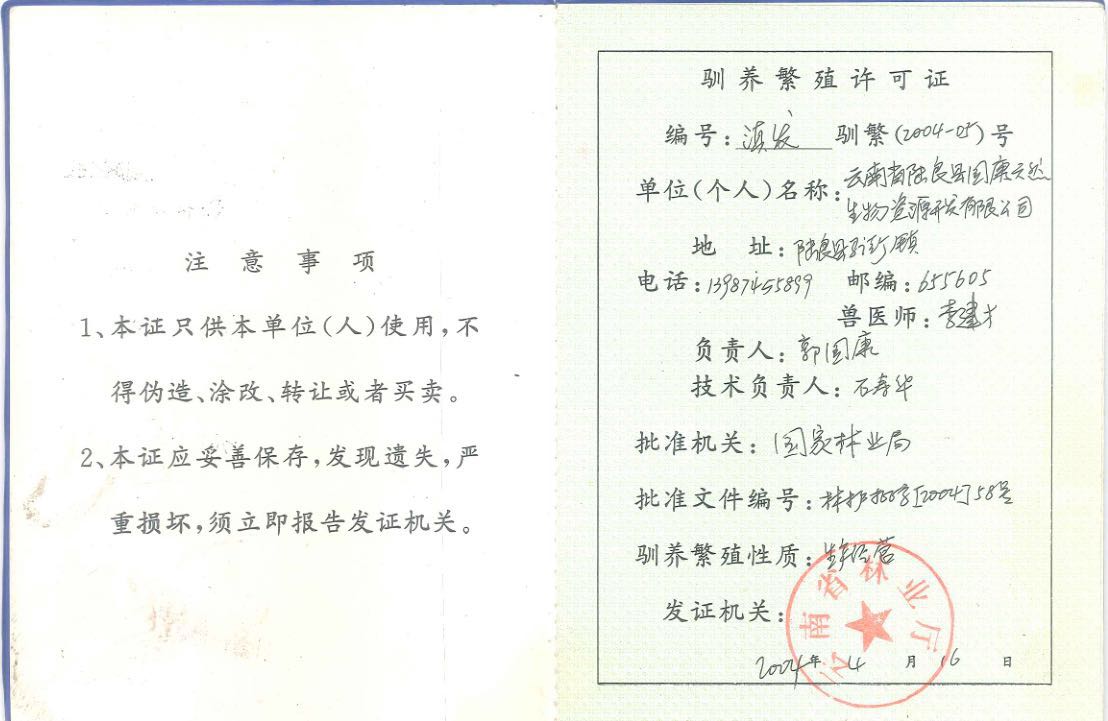 注意事项
1、本证只供本单位(人)使用,不
得伪造、涂改、转让或者买卖。
2、本证应妥善保存,发现遗失,严
重损坏,须立即报告发证机关。
驯养繁殖许可证
编号:滇发 驯繁(2004-05)号
单位(个人)名称:云南省陆良县国康天然
生物资源开发有限公司
地 址:陆良县 镇
电话:13987455899 邮编:655605
兽医师:李建才
负责人:郭国康
技术负责人:石寿华
批准机关:国家林业局
批准文件编号:林护 [2004]58号
驯养繁殖性质:生产经营
发证机关:
云南省林业厅
2004年4月16日